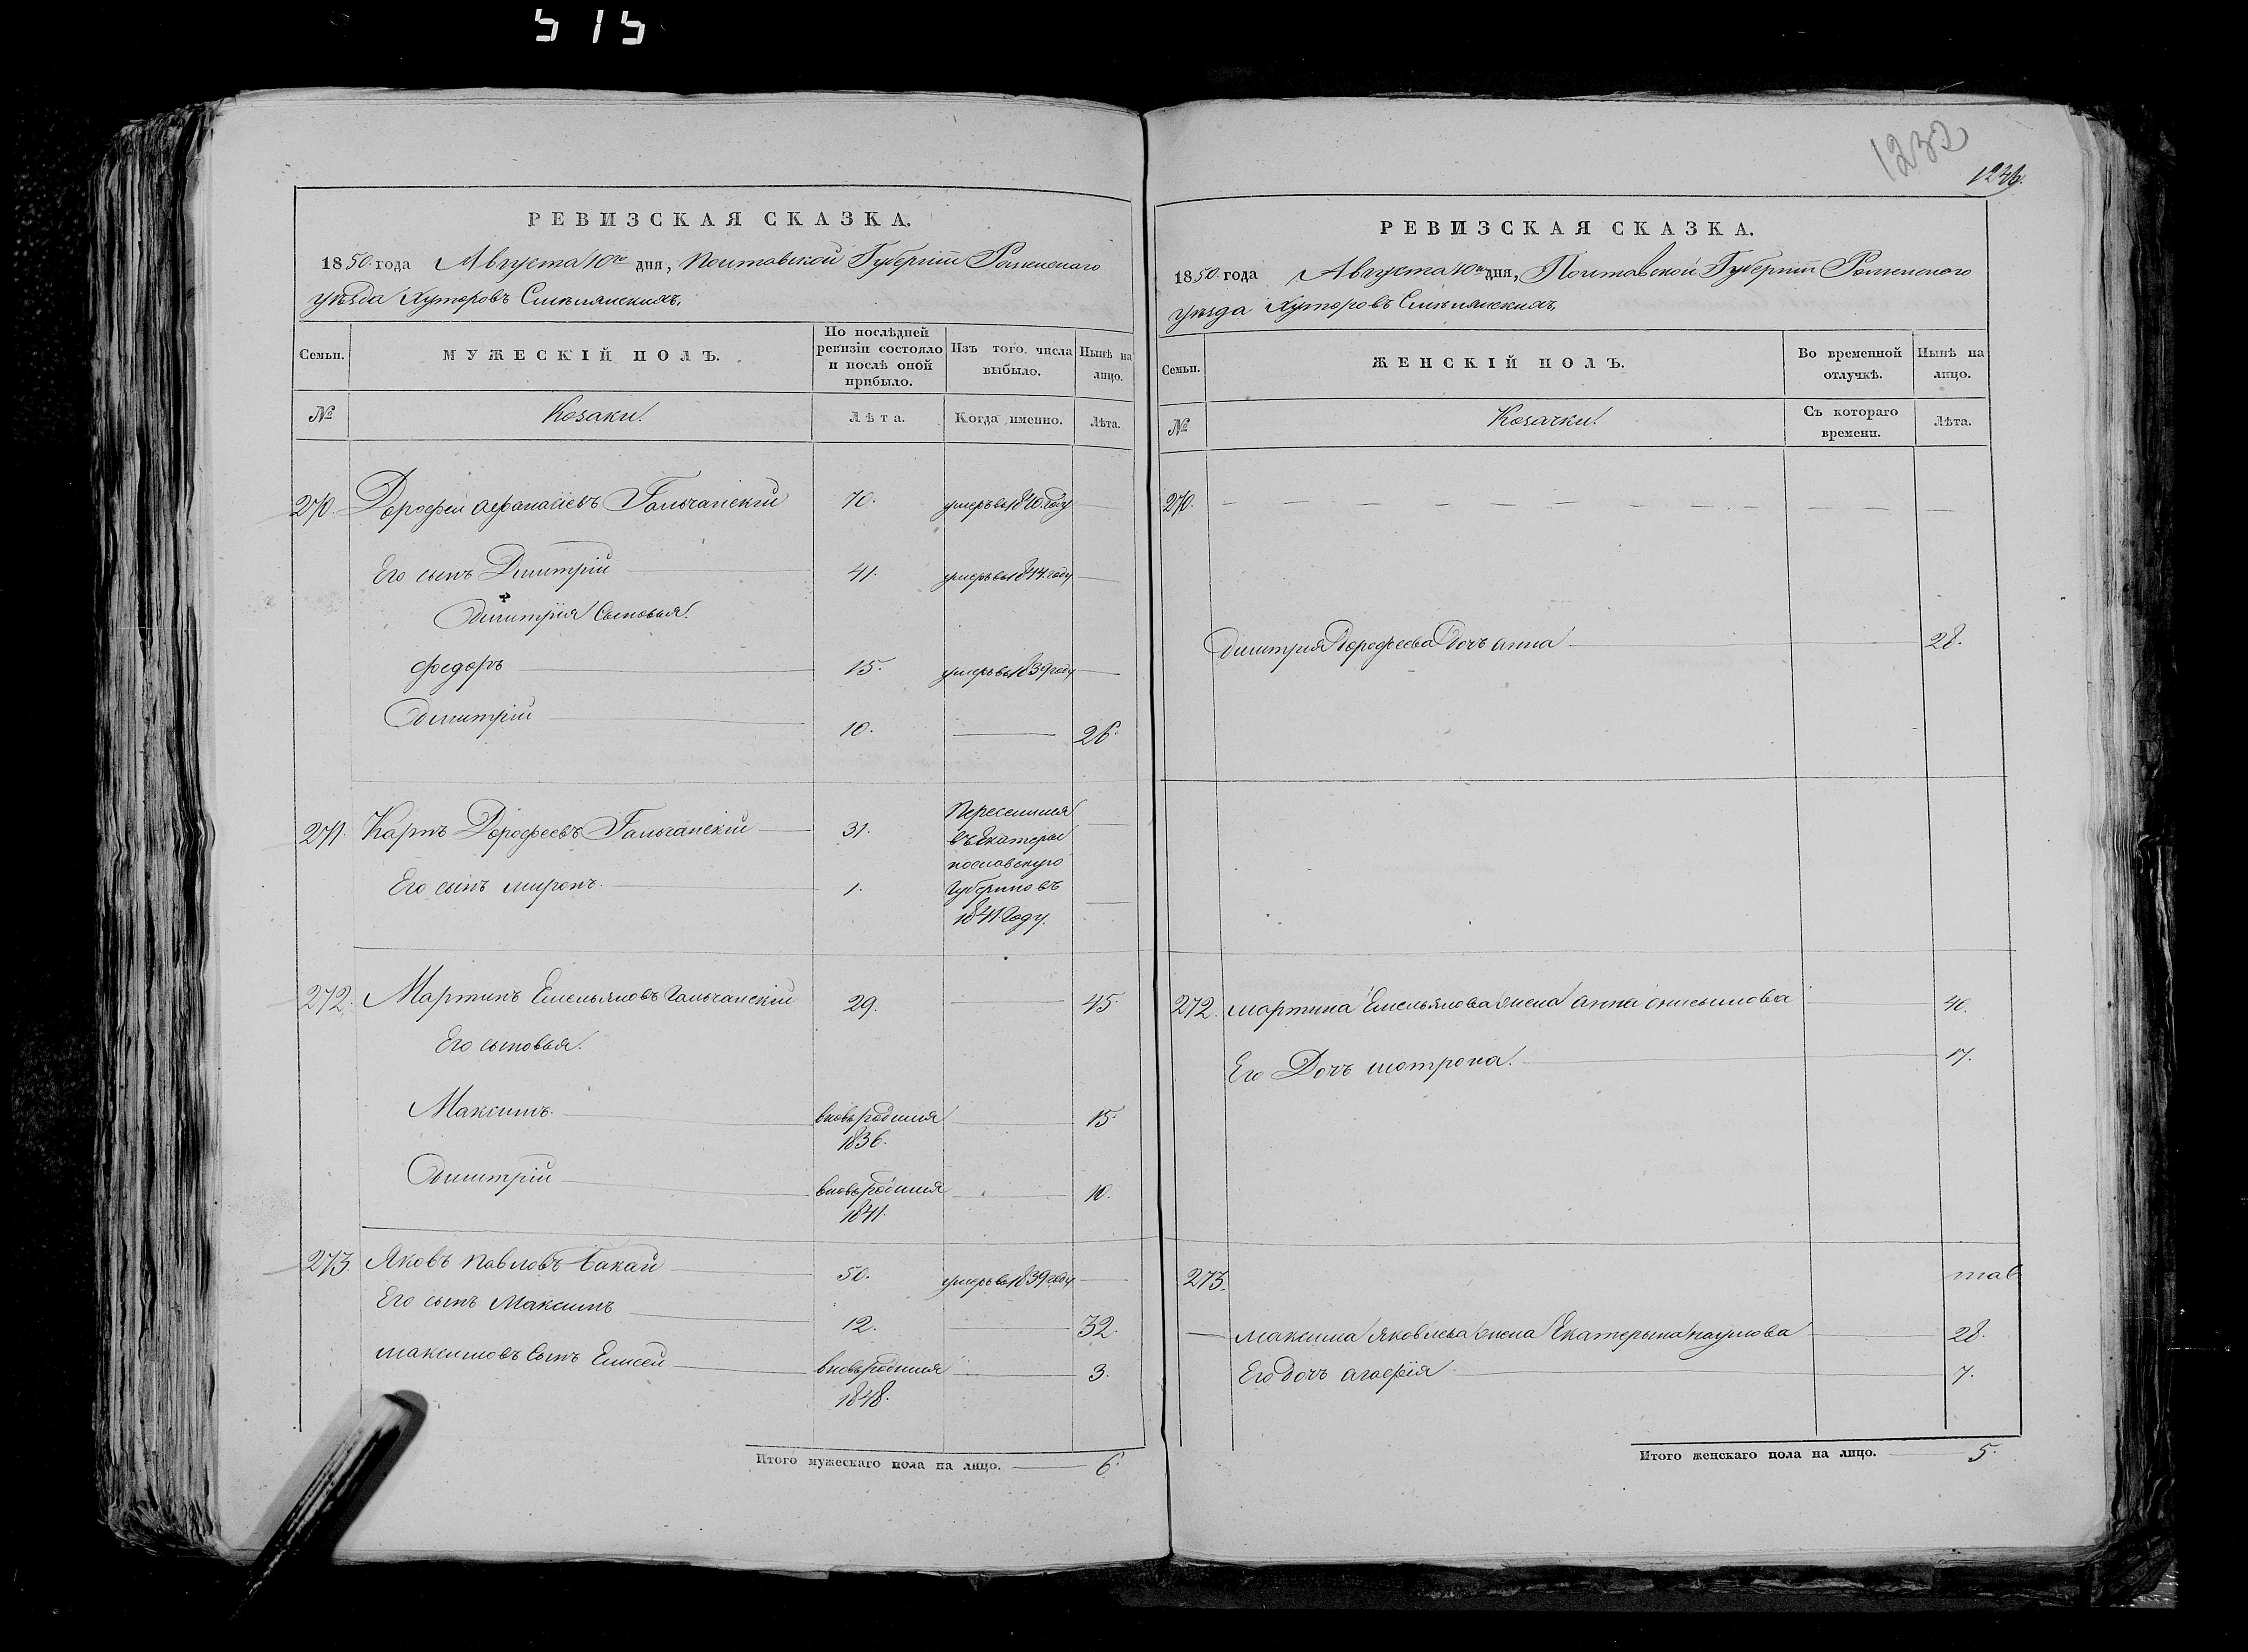 515
1232
1236.
РЕВИЗСКАЯ СКАЗКА.
1850 года Августа 10го дня, Полтавской Губерніи Роменскаго
уѣзда Хуторовъ Смѣлянскихъ,
Семьи. МУЖЕСКІЙ ПОЛЪ. По послѣдней ревизіи состояло и послѣ оной прибыло. Изъ того числа выбыло. Нынѣ на лицо.
№ Козаки. Лѣта. Когда именно. Лѣта.
270. Дорофеи Афанасіевъ Гальчанскій 70. умеръ въ 1840. году
Его сынъ Дмитрій 41. умеръ въ 1844. году
Дмитрія Сыновья.
Федоръ 15. умеръ въ 1839 году
Дмитрій 10. 26.
271. Карпъ Дорофеевъ Гальчанскій 31. Переселился
въ Екатери
нославскую
Его сынъ Миронъ. 1. Губернию въ
1841. Году.
272. Мартинъ Емельяновъ Гальчанскій 29. 45.
Его сыновья.
Максимъ. вновь родился 15.
1836.
Дмитрій вновь родился 10.
1841.
273. Яковъ Павловъ Бакай 50. умеръ въ 1839. году
Его сынъ Максимъ 12. 32.
Максимовъ Сынъ Елисей вновь родился 3.
1848.
Итого мужескаго пола на лицо. 6.
РЕВИЗСКАЯ СКАЗКА.
1850 года Августа 10го дня, Полтавской Губерніи Роменского
уѣзда Хуторовъ Смѣлянскихъ,
Семьи. ЖЕНСКІЙ ПОЛЪ. Во временной отлучкѣ. Нынѣ на лицо.
№ Козачки. Съ котораго времени. Лѣта.
270.
Дмитрия Дорофеева Дочь анна 28.
272. Мартина Емельянова жена анна онисимова 40.
Его Дочь мотрона. 17.
273.
Максима Яковлева жена Екатерина наумова 28.
Его дочь агафія 7.
Итого женскаго пола на лицо. 5.